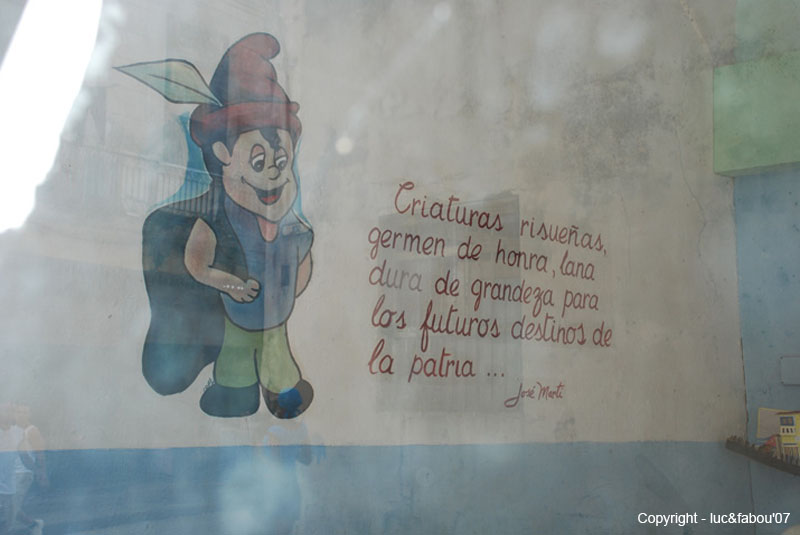 Criaturas risueñas,
germen de honra, lana
dura de grandeza para
los futuros destinos de
la patria ...
José Martí
Copyright - luc&fabou'07